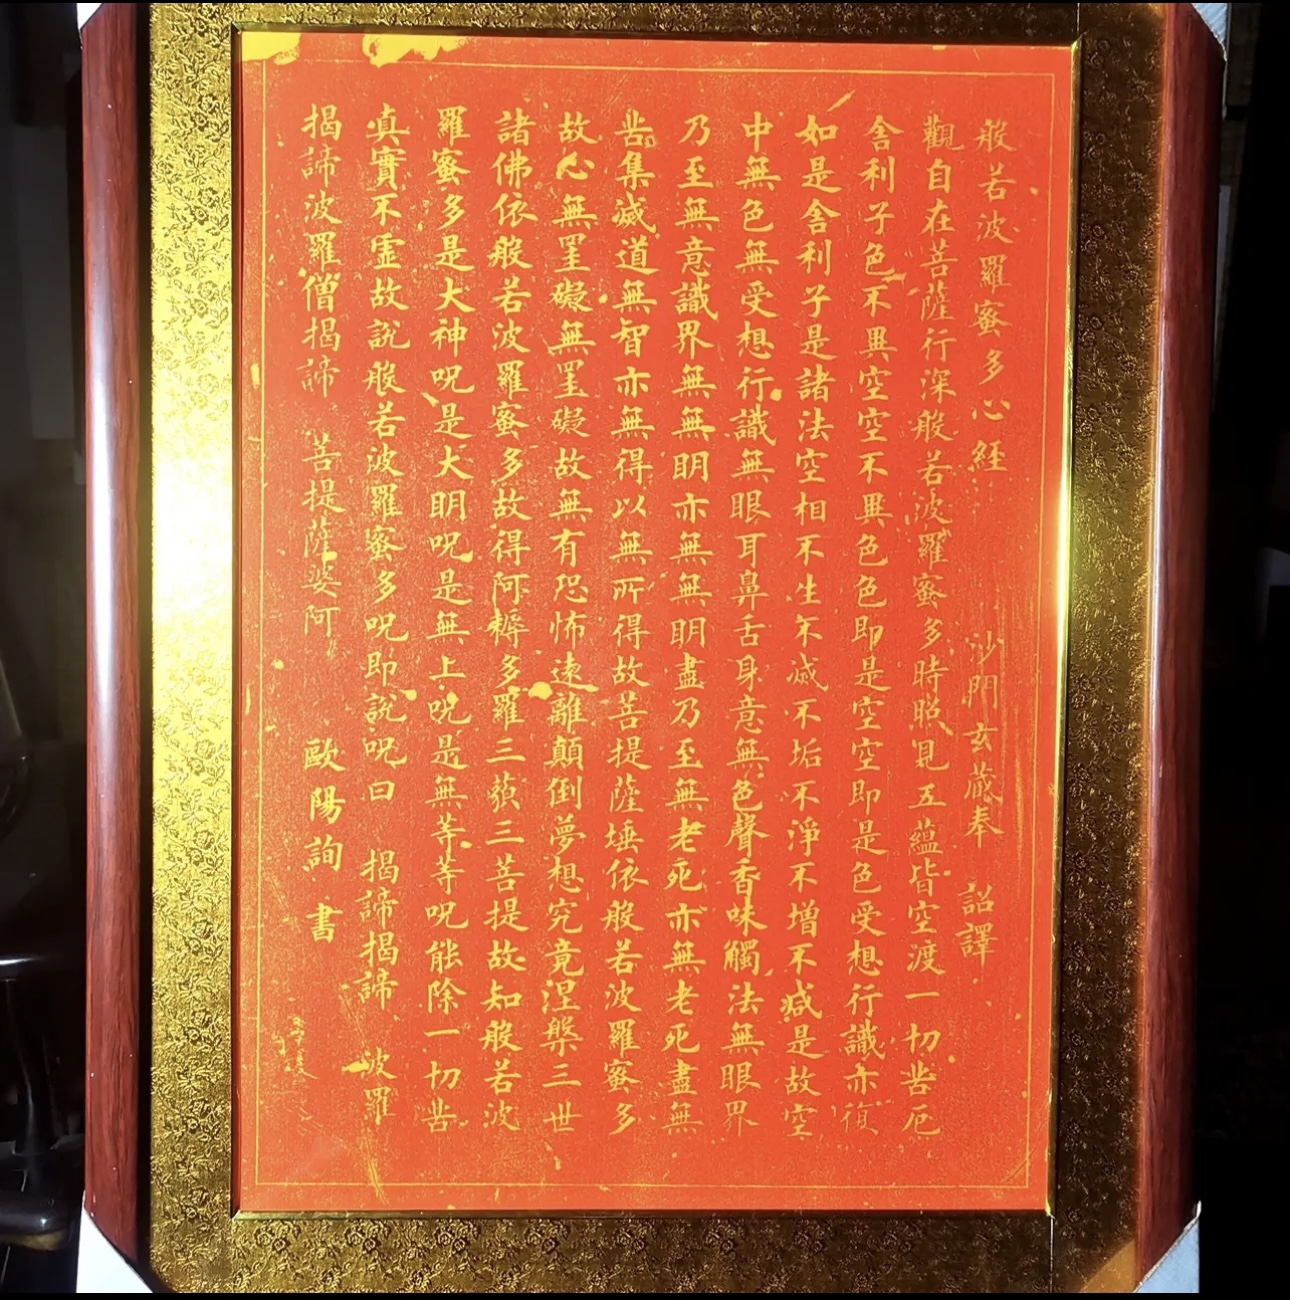 般若波羅蜜多心経　沙門玄蔵奉　詔譯
觀自在菩薩行深般若波羅蜜多時照見五蘊皆空渡一切苦厄
舎利子色不異空空不異色色即是空空即是色受想行識亦復
如是舎利子是諸法空相不生不滅不垢不淨不增不減是故空
中無色無受想行識無眼耳鼻舌身意無色聲香味觸法無眼界
乃至無意識界無無明亦無無明盡乃至無老死亦無老死盡無
苦集滅道無智亦無得以無所得故菩提薩埵依般若波羅蜜多
故心無罣礙無罣礙故無有恐怖遠離顛倒夢想究竟涅槃三世
諸佛依般若波羅蜜多故得阿耨多羅三藐三菩提故知般若波
羅蜜多是大神呪是大明呪是無上呪是無等等呪能除一切苦
真實不虛故說般若波羅蜜多呪即說呪曰　揭諦揭諦　波羅
揭諦波羅僧揭諦　菩提薩婆訶　歐陽詢書